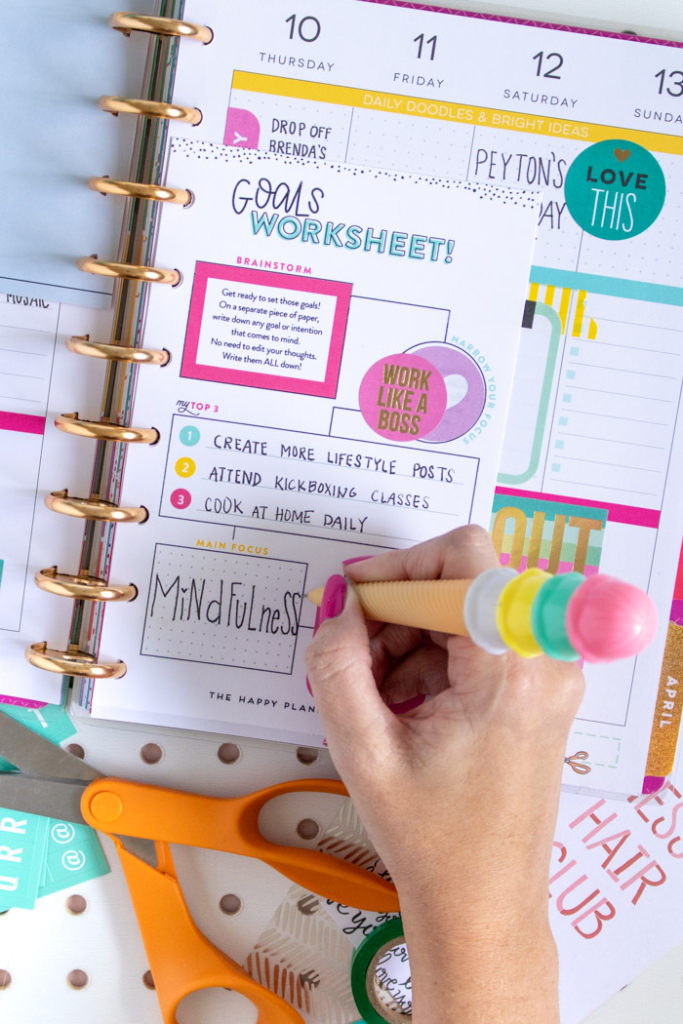 10
THURSDAY
11
FRIDAY
12
SATURDAY
13
SUND
DAILY DOODLES & BRIGHT IDEAS
DROP OFF
BRENDA'S
PEYTON'S
DAY
LOVE
THIS
MOSAIC
GOALS
WORKSHEET!
BRAINSTORM
Get ready to set those goals!
On a separate piece of paper,
write down any goal or intention
that comes to mind.
No need to edit your thoughts.
Write them ALL down!
NARROW YOUR FOCUS
WORK
LIKE A
BOSS
my TOP 3
1 CREATE MORE LIFESTYLE POSTS
2 ATTEND KICKBOXING CLASSES
3 COOK AT HOME DAILY
MAIN FOCUS
MiNdFuLness
THE HAPPY PLAN
OUT
APRIL
URR
@
@
ESS
HAIR
CLUB